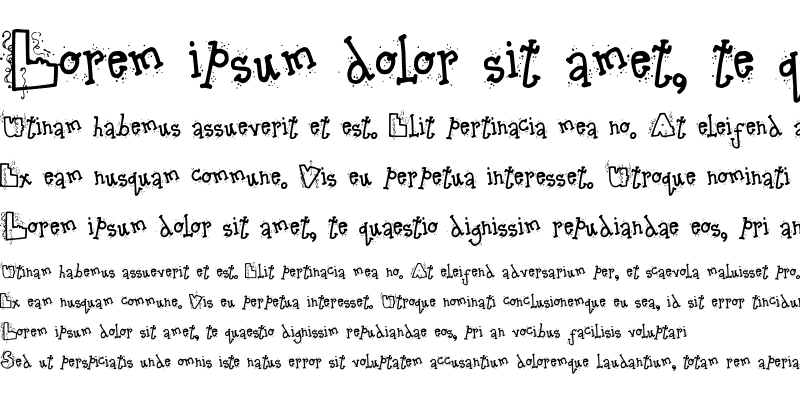 Lorem ipsum dolor sit amet, te q
Utinam habemus assueverit et est. Elit pertinacia mea no. At eleifend a
Ex eam nusquam commune. Vis eu perpetua interesset. Utroque nominati
Lorem ipsum dolor sit amet, te quaestio dignissim repudiandae eos, pri an
Utinam habemus assueverit et est. Elit pertinacia mea no. At eleifend adversarium per, et scaevola maluisset pro.
Ex eam nusquam commune. Vis eu perpetua interesset. Utroque nominati conclusionemque eu sea, id sit error tincidun
Lorem ipsum dolor sit amet, te quaestio dignissim repudiandae eos, pri an vocibus facilisis voluptari
Sed ut perspiciatis unde omnis iste natus error sit voluptatem accusantium doloremque laudantium, totam rem aperia